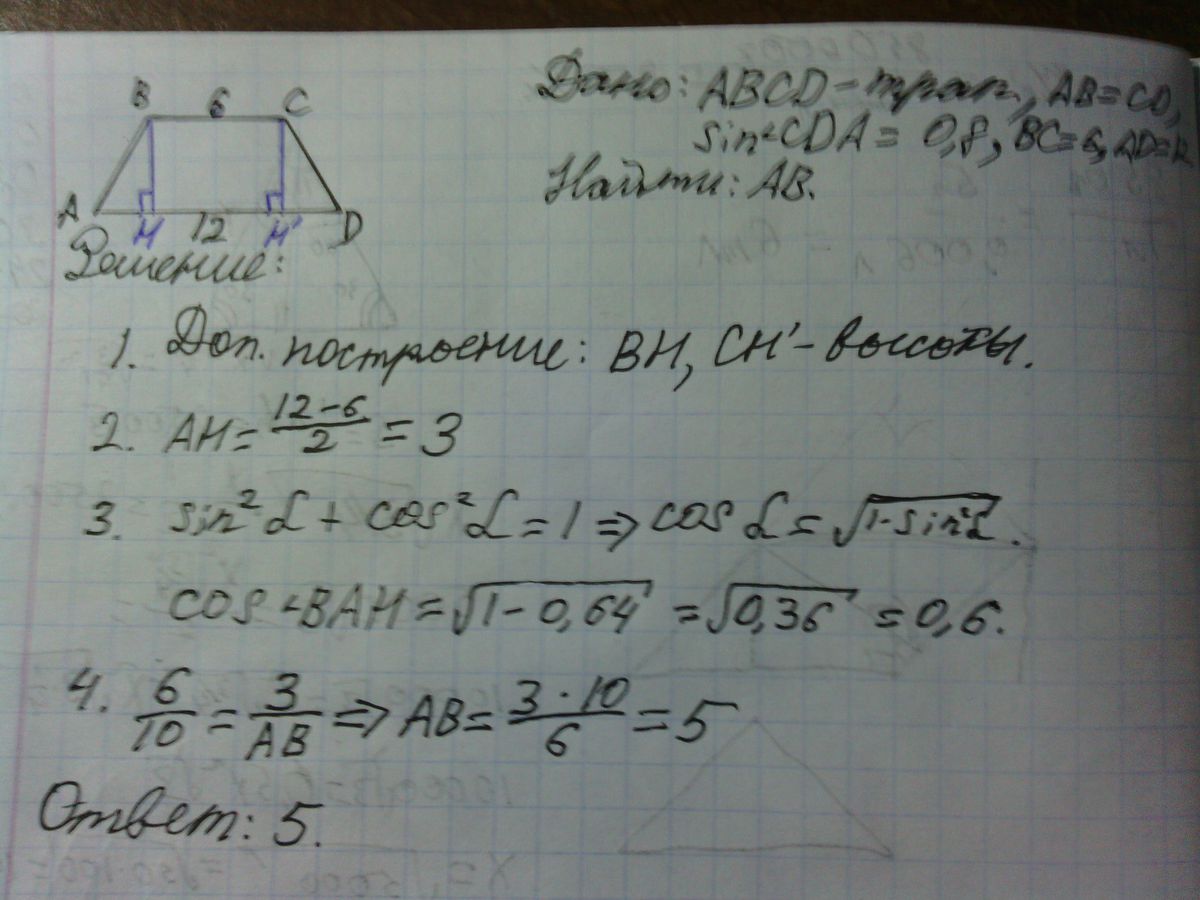 B 6 C
A H 12 H' D
Дано: ABCD - трап., AB = CD,
sin∠CDA = 0,8, BC = 6, AD = 12
Найти: AB.
Решение:
1. Доп. построение: BH, CH' - высоты.
2. AH = (12-6)/2 = 3
3. sin²α + cos²α = 1 ⇒ cos α = √(1-sin²α).
cos∠BAH = √(1-0,64) = √(0,36) = 0,6.
4. 6/10 = 3/AB ⇒ AB = (3·10)/6 = 5
Ответ: 5.